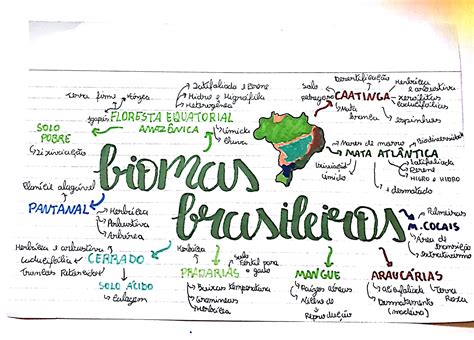 biomas
brasileiros
FLORESTA EQUATORIAL
AMAZÔNICA
Terra firme
Várzea
Igapós
Latifoliada e Perene
Hidro e Higrófila
Heterogênea
Úmida
Chuva
SOLO
POBRE
Lixiviação
PANTANAL
Planície alagável
Herbácea
Arbustiva
Arbórea
CERRADO
Herbácea e arbustiva
Caducifólia
Troncos Retorcidos
SOLO ÁCIDO
Calagem
PRADARIAS
Herbácea
Solo
fértil para
o gado
Baixas temperatura
Gramíneas
Herbáceas
MANGUE
Raízes aéreas
Reprodução
ARAUCÁRIAS
Terra
Roxa
Desmatamento
(madeira)
M. COCAIS
Palmeiras
Área de
transição
Extrativismo
MATA ATLÂNTICA
Mares de morro
Biodiversidade
Latifoliada
Perene
HIGRO e HIDRO
+ desmatado
úmido
CAATINGA
Desertificação
Solo
pedregoso
Mata
branca
Herbácea
e arbustiva
xerófitas
caducifólias
espinhosas